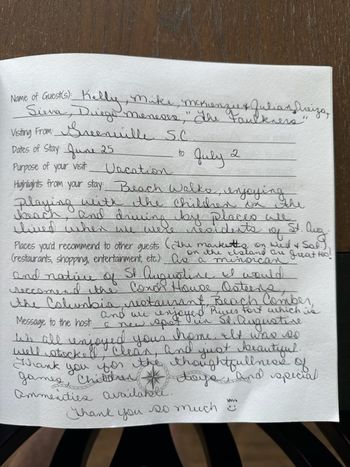 Name of Guest(s): Kelly, Mike, McKenzie & Julian,
Diego Meneses, "The Faulkners"
Visiting From Greenville S.C.
Dates of Stay June 25 to July 2
Purpose of your visit Vacation
Highlights from your stay Beach walks, enjoying
playing with the children on the
beach, and driving by places we
lived when we were residents of St. Aug
Places you'd recommend to other guests (the markets on Wed & Sat
(restaurants, shopping, entertainment, etc.) on the island are great too!
As a minorcan
and native of St Augustine I would
recommend the Oyster,
the Columbia restaurant, Beach Comber,
and we enjoyed Rivers Fort which is
Message to the host a new spot in St. Augustine
We all enjoyed your home. It was so
well stocked, clean, and just beautiful.
Thank you for the thoughtfullness of
games, children toys, and special
ammenities available.
Thank you so much